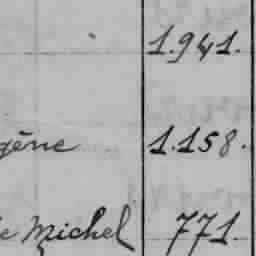 1.941.
gène 1.158.
e Michel 771.